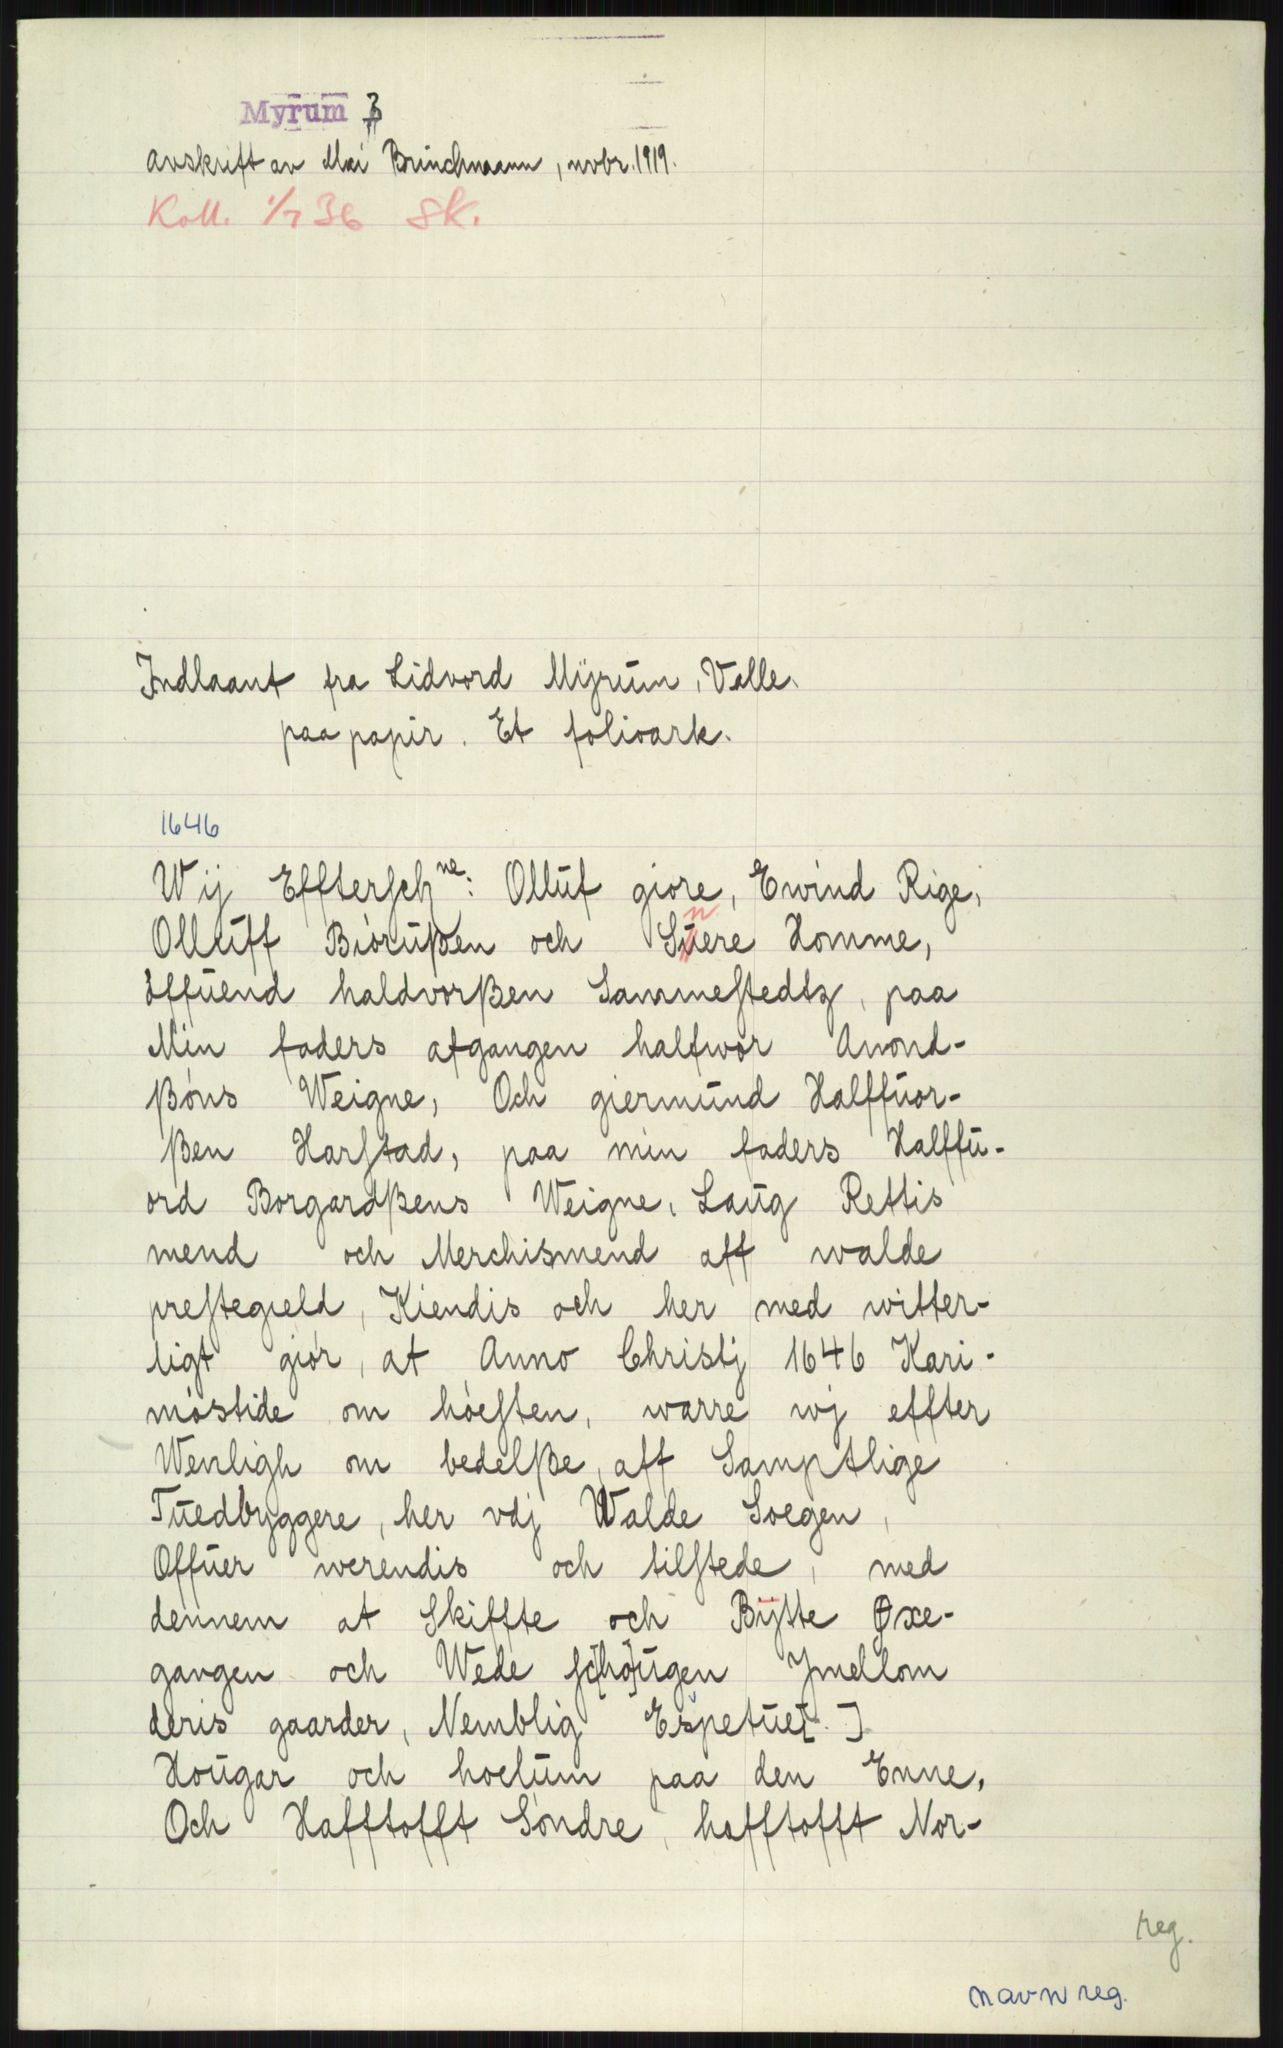 Myrum 3
Avskrift av Mai Brinchmann, novbr. 1919.
Koll. 1/7 36 SK.
Indlaant fra Lidvord Myrum, Valle.
paa papir. Et folioark.
1646
Wij Effterschne: Olluf giore, Ewind Rige,
Olluff Biorußen och Snere Homme,
öffuend haldvorßen Sammestedtz, paa
Min faders afgangen halfwor Anond-
ßóns Weigne, Och giermund Halffuor-
ßen Harstad, paa min faders Halffu-
ord Borgardßens Weigne, Laug Rettis
mend och Merchismend aff walde
prestegield, Kiendis och her med witter-
ligt giór, at Anno Christj 1646 Kari-
móstide om hóesten, warre wj effter
Wenligh om bedelße, aff Samptlige
Tuedbyggere, her vdj Walde Soegen,
Offuer werendis och tilstede, med
dennem at Skiffte och Bytte Øxe-
gangen och Wede sc[ho]ugen Jmellom
deris gaarder, Nemblig Espetue[. ]
Hougar och hoelum paa den Enne,
Och Hafftofft Sóndre, hafftofft Nor-
reg.
navnreg.